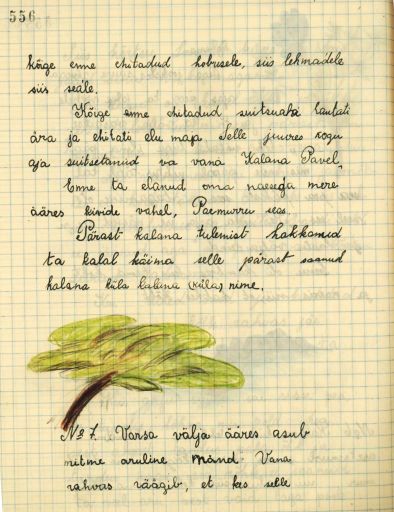 556
kõige enne ehitadud hobusele, siis lehmadele
siis seale.
Kõige enne ehitadud suitsuaba lautati
ära ja ehitati elu maja Selle juures kogu
aja suitsetanud va vana Kalana Pavel,
Enne ta elanud oma naesega mere
ääres kivide vahel, Paemurru sees.
Pärast kalana tulemist hakkamid
ta kalal käima selle pärast saanud
kalana küla kaluna (küla) nime.
No 7. Varsa välja ääres asub
mitme aruline mänd. Vana
rahvas räägib, et kes selle